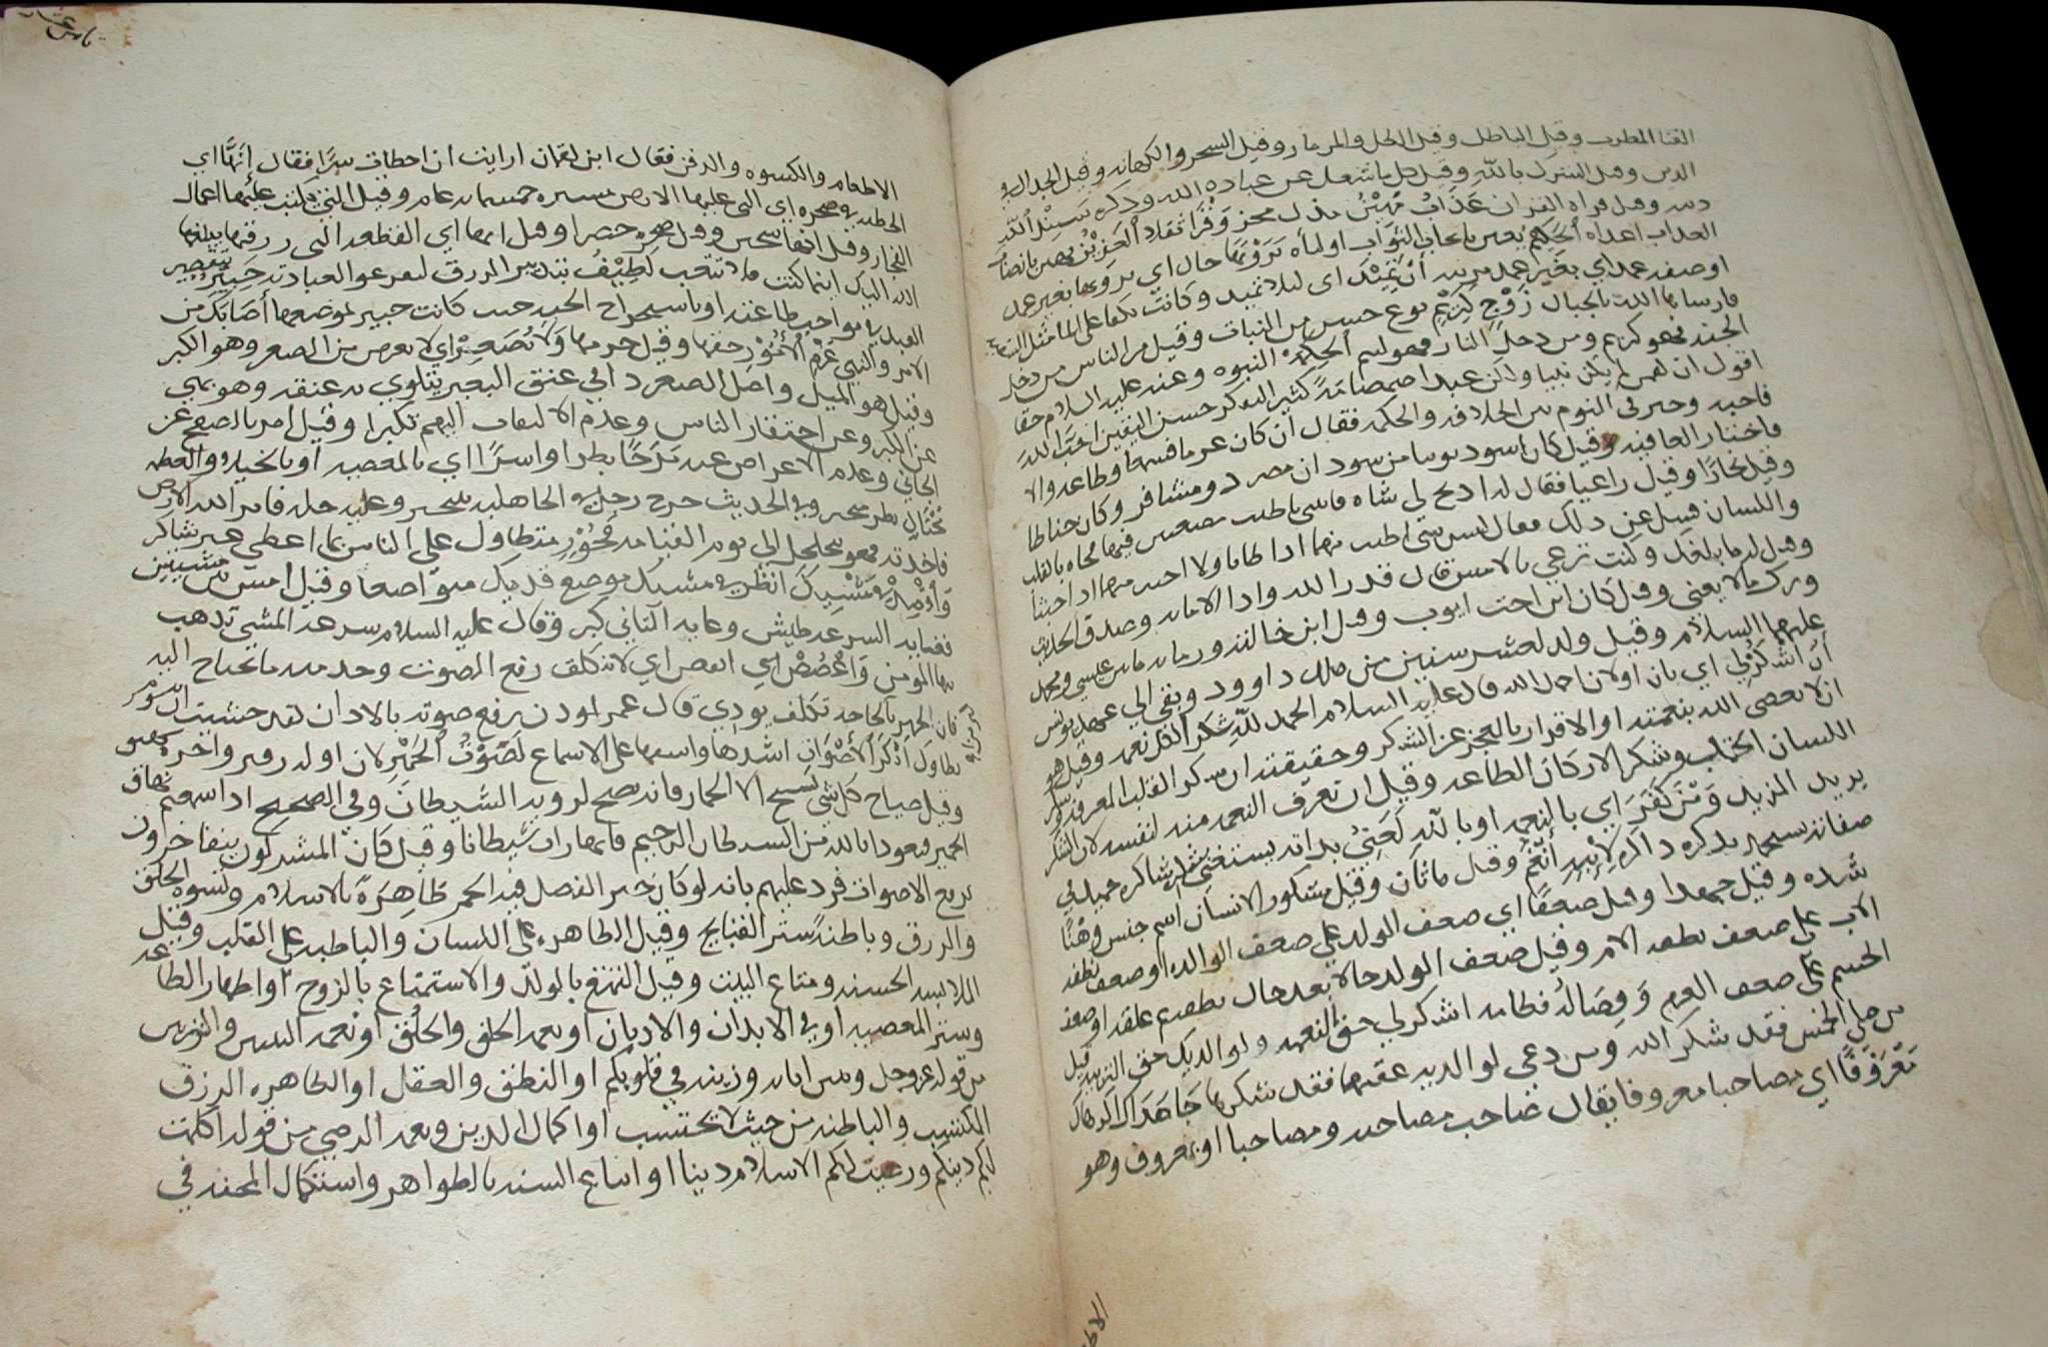 الغنا المطرب وقيل الباطل وقيل الطبل والمزمار وقيل السحر والكهانه وقيل الجدال في
الدين وقيل الشرك بالله وقيل كل ما شغل عن عباده الله وذكره سَبِيْلِ اللهِ
دينه وقيل قراه القران عَذَابٌ مُهِيْنٌ وَقْرًا ثقلا الْعَزِيْزُ
العذاب اعداه الْحَكِيْمُ تَرَوْنَهَا حال اي ترونها بغير عمد
اوصفه عمد اي بغير عمد مرييه أَنْ تَمِيْدَ اي ليلا تميد وكانت تكفا على الما مثل السفينه
فارساها الله بالجبال زَوْجٍ كَرِيْمٍ نوع حسن من النبات وقيل من الناس من دخل
الجنه فهو كريم ومن دخل النار فهو لئيم الْحِكْمَةَ النبوه وعنه عليه السلام حقا
اقول ان لقمن لم يكن نبيا ولكن عبدا صمصامة كثير التفكر حسن اليقين احَبَّ الله
فاحبه وخير في النوم بين الخلافه والحكمه فقال ان كان عزما فسمعا وطاعه والا
فاختار العافيه وقيل كان اسود نوبيا من سودان مصر ذو مشافر وكان خياطا
وقيل نجارًا وقيل راعيا فقال له اذبح لي شاه فاتني باطيب مضغتين فيها فجاه بالقلب
واللسان فسيل عن ذلك فقال ليس شي اطيب منهما اذا طابا ولا اخبث منهما اذا خبثا
وقيل له ما بلغك وكنت ترعى بالامس قال قدر الله وادا الامانه وصدق الحديث
وترك ما لا يعني وقيل كان ابن اخت ايوب وقيل ابن خالته وزمانه ما بين عيسى ومحمد
عليهما السلام وقيل ولد لعشر سنين من ملك داوود وبقي الى عهد يونس
أَنِ اشْكُرْلِي اي بان اولان احمد الله قال عليه السلام الحمد للّهِ شكر لكل نعمه وقيل هو
ان لا يعصى الله بنعمته او الاقرار بالعجز عن الشكر وحقيقته ان شكر القلب المعرفه وشكر
اللسان الحمد وشكر الاركان الطاعه وقيل ان تعرف النعمه منه لنفسه لان الشكر
يريد المزيد وَمَنْ كَفَرَ اي بالنعمه او بالله لَغَنِيٌّ بذاته يستغني شاكره حميد في
صفاته سيحمد بذكره ذاكره لِابْنِهِ أنْعُمُ وقيل ماثان وقيل مشكور الانسان اسم جنس وَهْنًا
شده وقيل جهدا وقيل ضعفًا اي ضعف الولد على ضعف الوالده او ضعف نطفه
الاب على ضعف نطفه الام وقيل ضعف الولد حالا بعد حال نطفه ثم علقه او ضعف
الجسم على ضعف العزم وَفِصَالُهُ فطامه اشكر لي حق النعمه ولوالديك حق التربيه قيل
من صلى الخمس فقد شكر الله ومن دعى لوالديه عقبها فقد شكرهما جَاهَدَاكَ
مَعْرُوْفًا اي مصاحبا معروفا يقال صاحب مصاحبه ومصاحبا او بمعروف وهو
الاطعام والكسوه والرفق فقال ابن لقمان ارايت ان اخطات سِرًّا فقال إنَّهَا اي
الخطيه في صخره اي التي عليها الارض مسيره خمسمايه عام وقيل التي يكتب عليها اعمال
الفجار وقيل انها سجين وقيل صخره خضرا وقيل انها اي القطعه التي رزقتها يبلغها
الله اليك اينما كنت فلا تتعب لَطِيْفٌ بتدبير الرزق ليفرغوا لعبادته خَبِيْرٌ بتقصير
العبد في مواجب طاعته او باستخراج الحبه حيث كانت خبير بموضعها أَصَابَكَ من
الامر والنهي عَزْمِ الْأُمُوْرِ حقها وقيل حزمها وَلَا تُصَعِّرْ اي لا تعرض من الصعر وهو الكبر
وقيل هو الميل واصل الصعر دا في عنق البعير يتلوي به عنقه وهو نهي
عن الكبر وعن احتقار الناس وعدم الالتفات اليهم تكبرا وقيل امر بالصفح عن
الجاني وعدم الاعراض عنه مَرَحًا بطرا واشرًا اي بالمعصيه او بالخيلاء والعظمه
مُخْتَالٍ بطر متبختر وفي الحديث خرج رجل في الجاهليه يتبختر وعليه حله فامر الله الارض
فاخذته فهو يتجلجل الى يوم القيامه فَخُوْرٍ متطاول على الناس بما اعطي غير شاكر
وَاقْصِدْ فِي مَشْيِكَ انظر في مشيك موضع قدميك متواضعا وقيل امش بين مشيتين
فغايه السرعه طيش وغايه التاني كبر وقال عليه السلام سرعه المشي تذهب
بها المومن وَاغْضُضْ اي انقص اي لا تتكلف رفع الصوت وخذ منه ما تحتاج اليه
فان الجهر بالحاجه تكلف يوذي قال عمر لموذن يرفع صوته بالاذان لقد خشيت ان
أَنْكَرَ الْأَصْوَاتِ اشدها واسمجها على الاسماع لَصَوْتُ الْحَمِيْرِ لان اوله زفير واخره شهيق
وقيل صياح كل شي تسبيح الا الحمار فانه يصيح لرويه الشيطان وفي الصحيح اذا سمعتم نهاق
الحمير فتعوذوا بالله من الشيطان الرجيم فانها رات شيطانا وقيل كان المشركون يتفاخرون
برفع الاصوات فرد عليهم بانه لو كان خير لفضل فيه الحمر ظَاهِرَةً بالاسلام وتسويه الخلق
والرزق وباطنةً ستر القبايح وقيل الظاهره على اللسان والباطنه على القلب وقيل
الملابس الحسنه ومتاع البيت وقيل التمتع بالولد والاستمتاع بالزوج او اظهار الطاعه
وستر المعصيه او في الابدان والاديان او نعمه الخلق والخُلُق او نعمه اللبس والتزيين
من قوله عز وجل ومن اياته وزينه في قلوبكم او النطق والعقل او الظاهره الرزق
المكتسب والباطنه من حيث لا تحتسب او اكمال الدين ونعمه الرضى من قوله اكملت
لكم دينكم ورضيت لكم الاسلام دينا او اتباع السنه بالظواهر واستكمال المحنه في